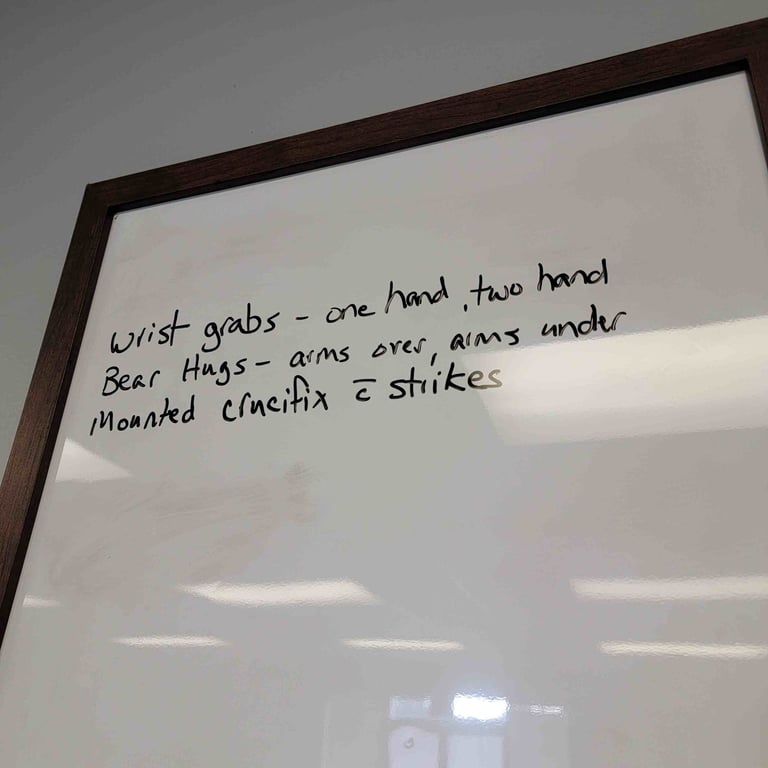 Wrist grabs - one hand, two hand
Bear Hugs - arms over, arms under
Mounted crucifix c̄ strikes